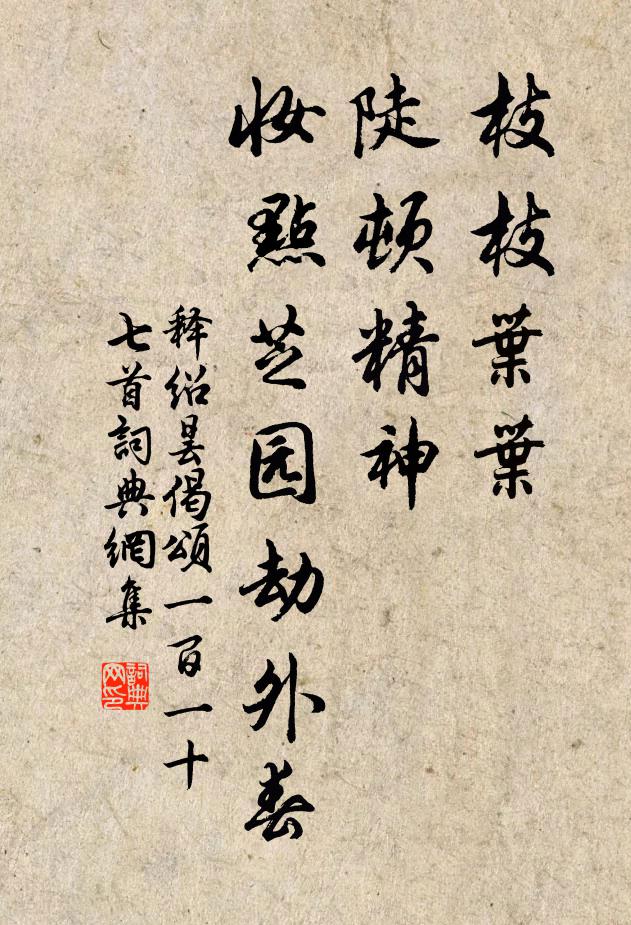 枝枝葉葉
陡頓精神
妝點芝园劫外春
释绍昙偈頌一百一十
七首詞典網集
詞典网印